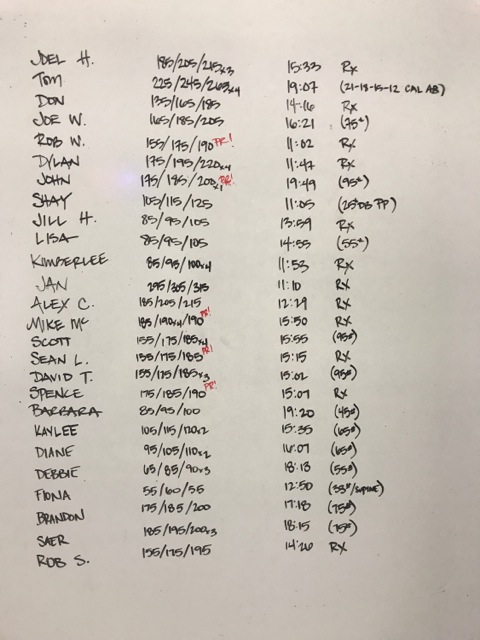 JOEL H. 185/205/215x3 15:33 Rx
TOM 225/245/263x4 19:07 (21-18-15-12 CAL AB)
DON 135/165/185 14:16 Rx
JOE W. 165/185/205 16:21 (75#)
ROB W. 155/175/190 PR! 11:02 Rx
DYLAN 175/195/220x4 11:47 Rx
JOHN 175/185/200x1 PR! 19:49 (95#)
SHAY 105/115/125 11:05 PP)
JILL H. 85/95/105 13:59 Rx
LISA 85/95/105 14:55 (55#)
KIMBERLEE 85/95/100x4 11:53 Rx
JAN 295/305/315 11:10 Rx
ALEX C. 185/205/215 12:29 Rx
MIKE MC 185/190x4/190 PR! 15:50 Rx
SCOTT 155/175/185x4 15:55 (95#)
SEAN L. 155/175/185 PR! 15:15 Rx
DAVID T. 155/175/185x3 15:02 (95#)
SPENCE 175/185/190 PR! 15:07 Rx
BARBARA 85/95/100 19:20 (45#)
KAYLEE 105/115/120x2 15:35 (65#)
DIANE 95/105/110x2 16:07 (65#)
DEBBIE 65/85/90x3 18:13 (55#)
FIONA 55/60/55 12:50 (33#/SUPINE)
BRANDON 175/185/200 17:18 (75#)
SAER 185/195/200x3 18:15 (75#)
ROB S. 155/175/195 14:26 Rx